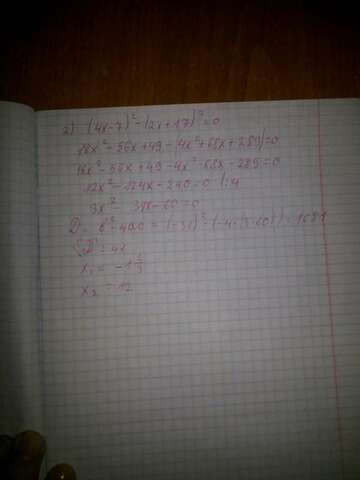 2) (4x-7)²-(2x+17)²=0
16x²-56x+49-(4x²+68x+289)=0
16x²-56x+49-4x²-68x-289=0
12x²-124x-240=0 |:4
3x²-31x-60=0
D=b²-4ac=(-31)²-(-4·(3·60))=1681
√D=41
x₁=-1⅔
x₂=12